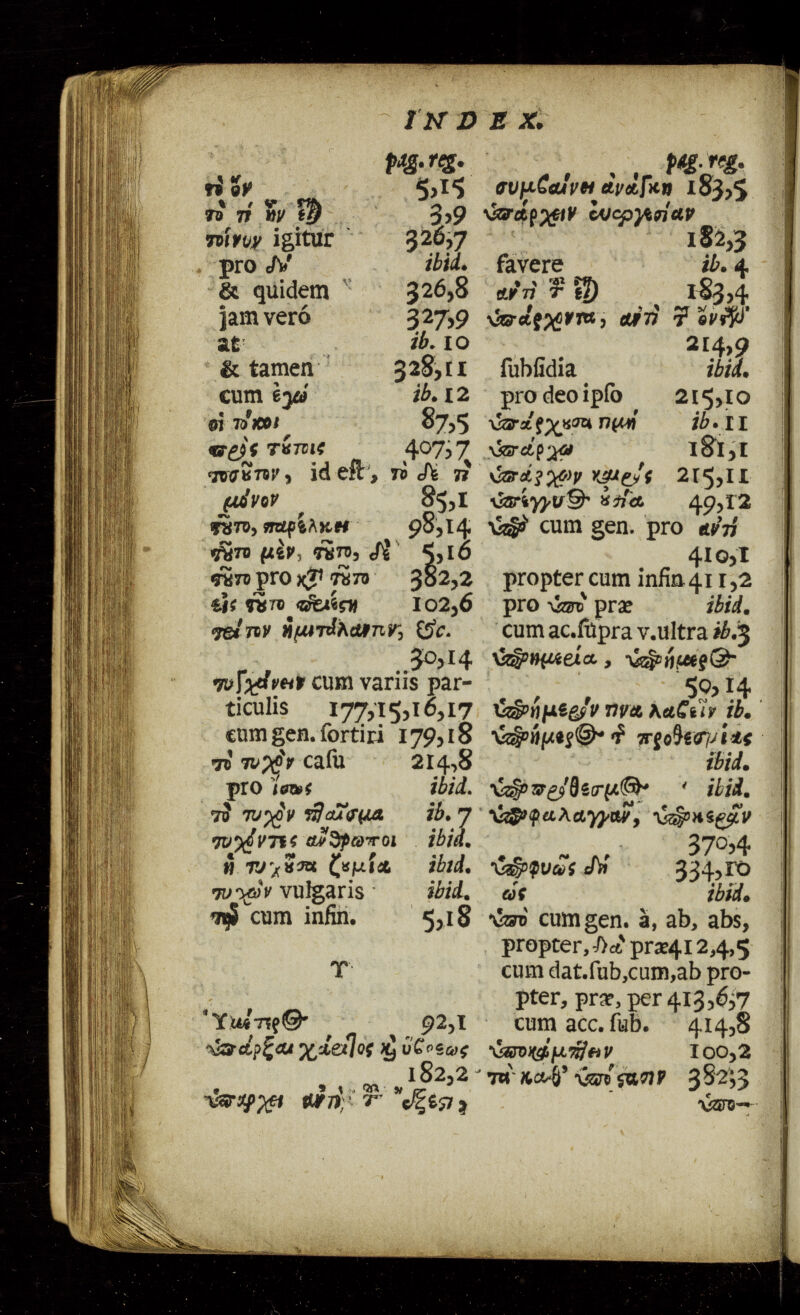 INDEX.
pag. reg.
τὸ ὂν 5,15
τὸ τί ἦν εἶ) 3,9
τοίνυν igitur 326,7
pro δ' ibid.
& quidem 326,8
jam verò 327,9
at ib. 10
& tamen 328,11
cum ἐγώ ib. 12
οἱ τόκοι 87,5
πρὸς τούτοις 407,7
τοσοῦτον, id eſt, τὸ δέ τι
μόνον 85,1
τοῦτο, παρέλκει 98,14
τοῦτο μὲν, τοῦτο, δὲ 5,16
τοῦτο pro κατὰ τοῦτο 382,2
εἰς τοῦτο 102,6
ἡμιτάλαντον, &c.
30,14
τυγχάνειν cum variis par-
ticulis 177,15,16,17
cum gen. fortiri 179,18
τὸ τυχὸν caſu 214,8
pro ἴσως ibid.
τὸ τυχὸν θαῦσμα ib. 7
τυχόντες ἄνθρωποι ibid.
ἡ τυχοῦσα ζημία ibid.
τυχὼν vulgaris ibid.
τῷ cum infin. 5,18
Υ
Ὑμέτερος 92,1
ὑπάρξαι χάριτος καὶ ὕβρεως
182,2
ὑπάρχει ἀντὶ τοῦ ἔξεστι,
pag. reg.
συμβαίνει ἀνάγκη 183,5
ὑπάρχειν εὐεργεσίαν
182,3
favere ib. 4
ἀντὶ τοῦ εἶ) 183,4
ὑπάρχοντα, ἀντὶ τοῦ
214,9
ſubſidia ibid.
pro deo ipſo 215,10
ὑπάρχουσα τιμὴ ib. 11
ὑπάρχω 181,1
ὑπάρχων καιρὸς 215,11
ὑπέγγυος οὐσία 49,12
ὑπὲρ cum gen. pro ἀντὶ
410,1
propter cum infin 411,2
pro ὑπὸ præ ibid.
cum ac. ſupra v. ultra ib. 3
ὑπερημερία, ὑπερήμερος
50,14
ὑπερήμερόν τινα λαβεῖν ib.
ὑπερήμερος τῆς προθεσμίας
ibid.
ὑπερπρόθεσμος ibid.
ὑπερφαλαγγᾶν, ὑπερκερᾶν
370,4
ὑπερφυῶς δὴ 334,10
ὡς ibid.
ὑπὸ cum gen. à, ab, abs,
propter, διὰ præ 412,4,5
cum dat. ſub, cum, ab pro-
pter, præ, per 413,6,7
cum acc. ſub. 414,8
ὑποκάμπτειν 100,2
τὰ καθ' ὑπόστασιν 382,3
ὑπο-